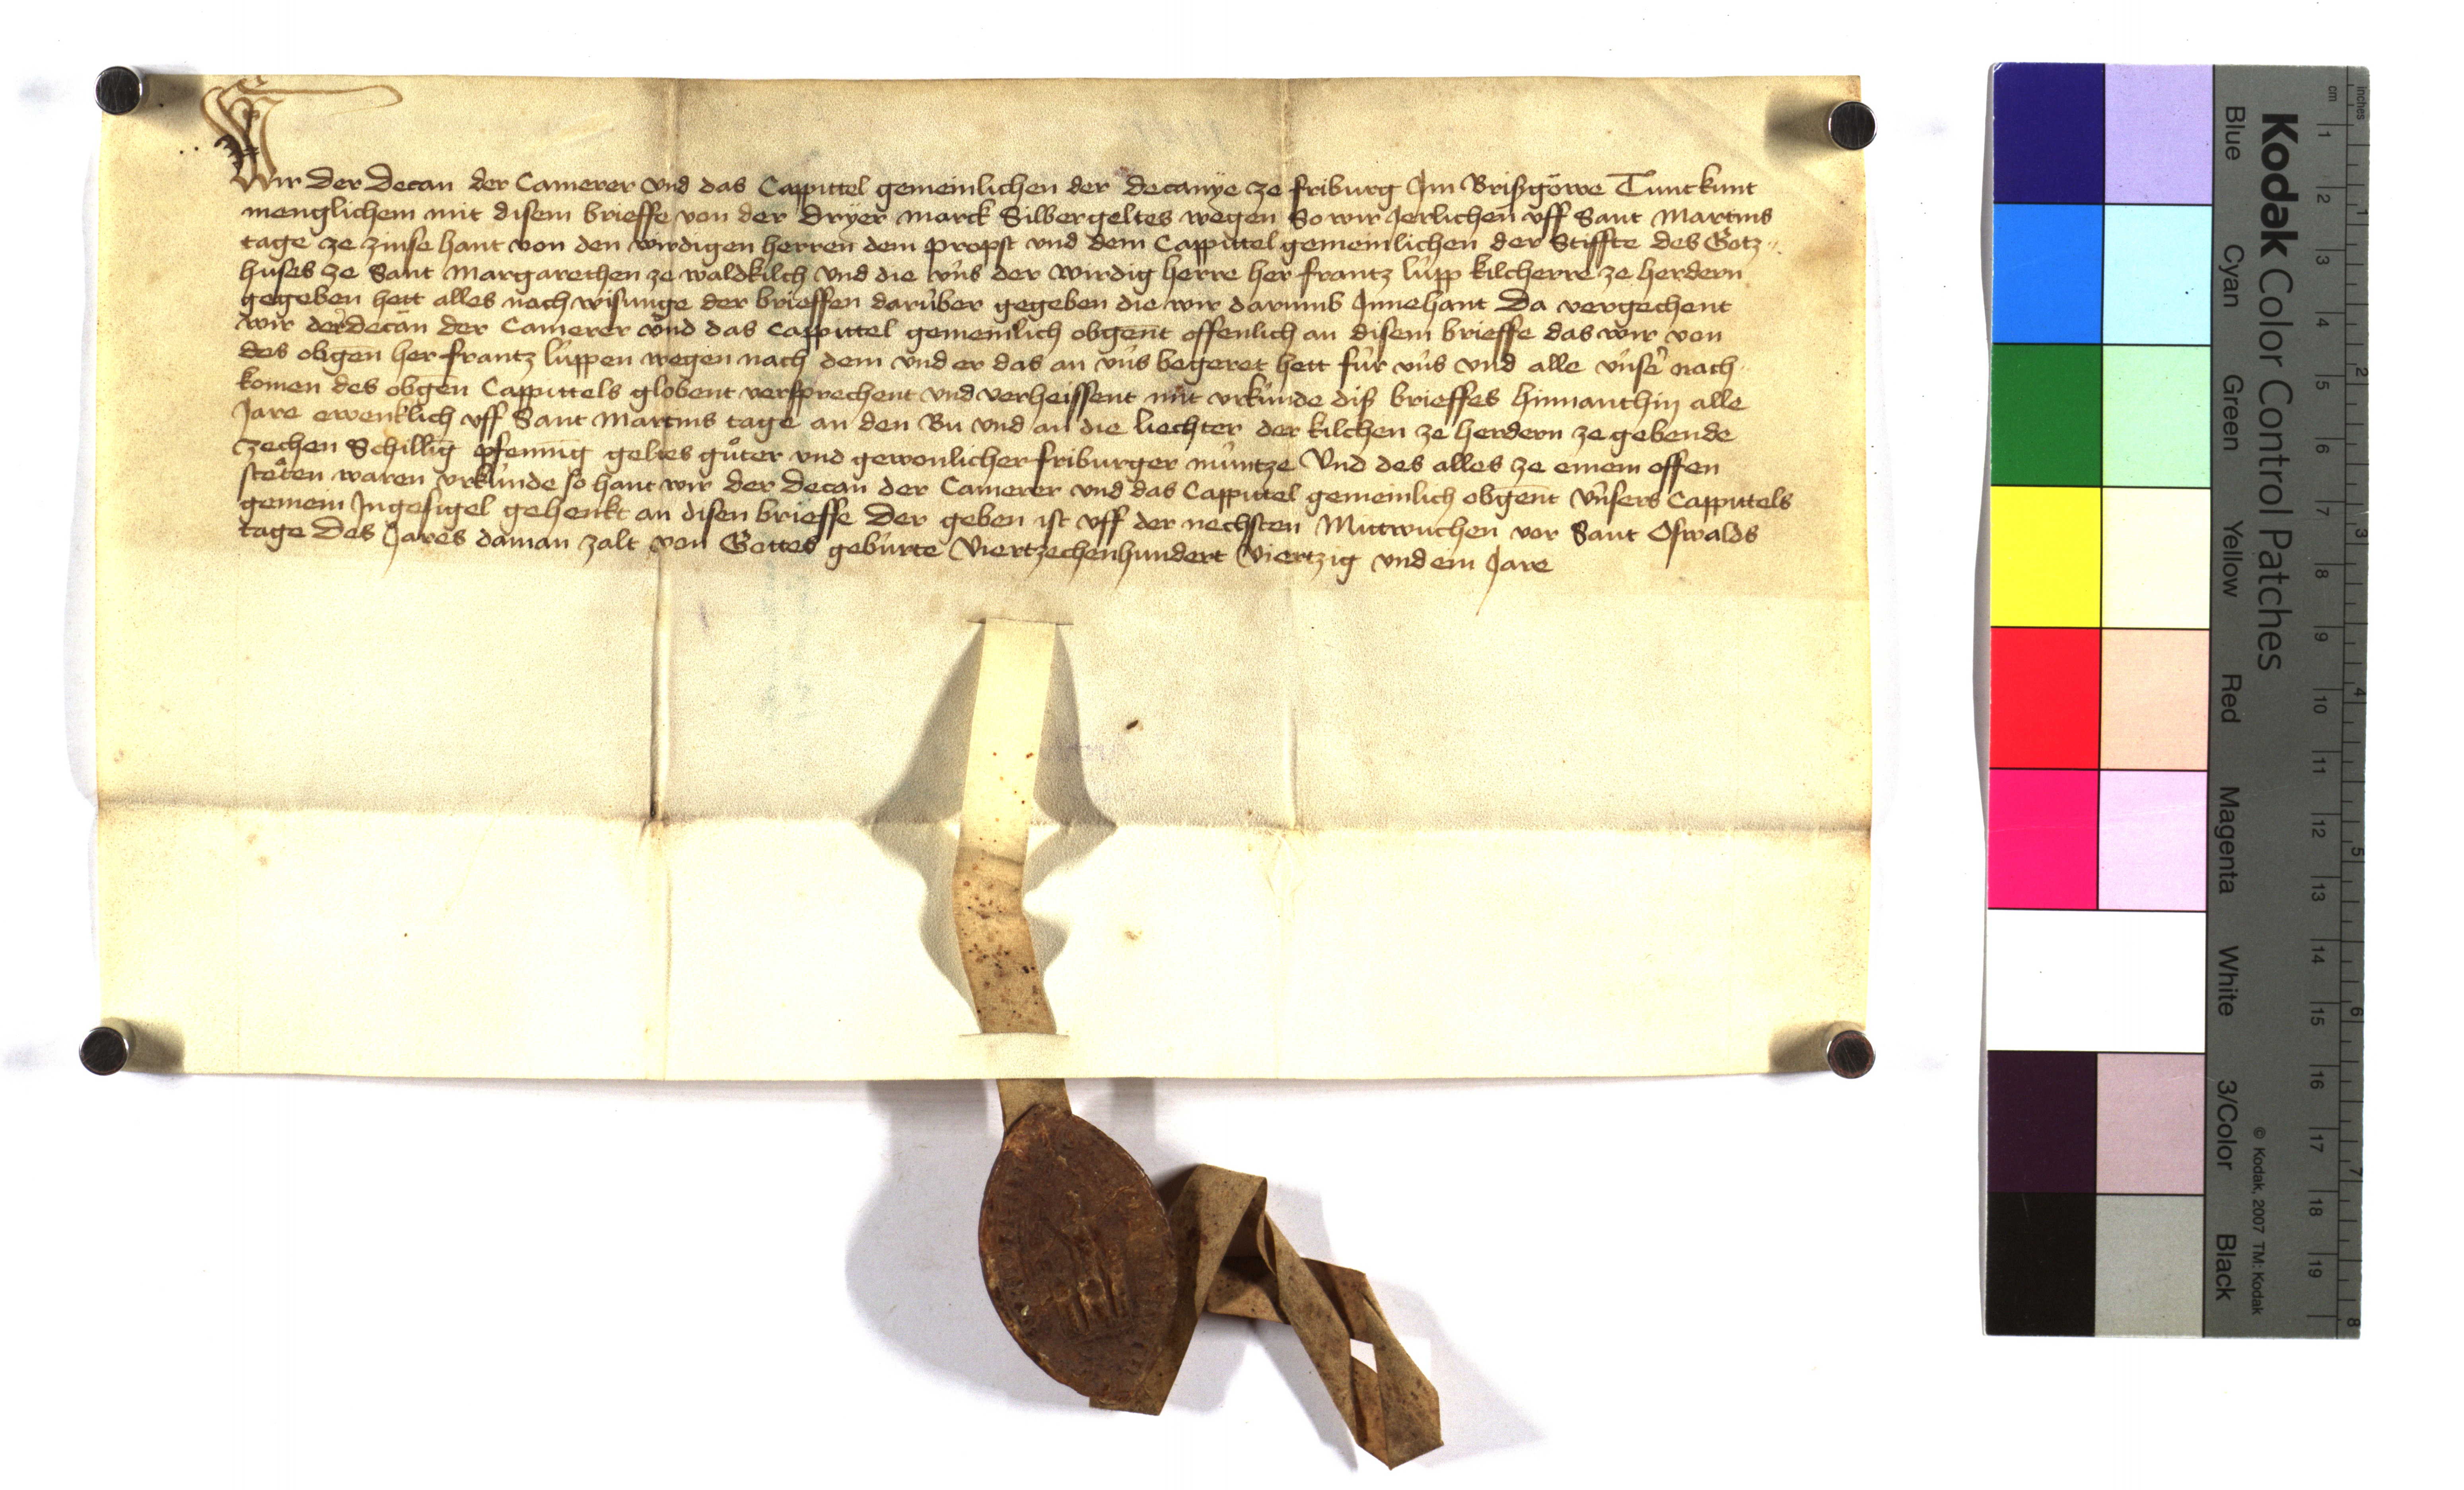 Wir der Decan der Camerer vnd das Cappittel gemeinlichen der decanÿe ze friburg Jm Brißgöwe Tunt kunt
menglichem mit disem brieffe von der dryer marck Silbergeltes wegen So wir Jerlichen vff Sant Martins
tage ze zinse hant von den wirdigen herren dem propst vnd dem Cappittel gemeinlichen der Stiffte des Gotz-
huses ze Sant Margarethen ze waldkilch vnd die vns der wirdig herre her frantz lupp kilcherre ze herdern
gegeben hett alles nach wisunge der brieffen darüber gegeben die wir darumb Jnnehant Da vergechent
wir der decan der Camerer vnd das Cappittel gemeinlich obgent offenlich an disem brieffe das wir von
des obgen her frantz luppen wegen nach dem vnd er das an vns begeret hett für vns vnd alle vnser nach-
komen des obgen Cappittels globent versprechent vnd verheissent mit vrkünde diß brieffes hinnanthin alle
Jare ewenklich vff Sant Martins tage an den Bu vnd an die liechter der kilchen ze herdern ze gebende
zechen Schillig pfennig geltes güter vnd gewonlicher friburger müntze Vnd des alles ze einem offen
steten waren vrkünde so hant wir der Decan der Camerer vnd das Cappittel gemeinlich obgent vnsers Cappittels
gemein Jngesigel gehenkt an disen brieffe Der geben ist vff der nechsten Mittwuchen vor Sant Oswalds
tage Des Jares do man zalt von Gottes gebürte Viertzechenhundert Viertzig vnd ein Jare
Kodak Color Control Patches
Blue Cyan Green Yellow Red Magenta White 3/Color Black
© Kodak, 2007 TM: Kodak
cm 1 2 3 4 5 6 7 8 9 10 11 12 13 14 15 16 17 18 19
inches 1 2 3 4 5 6 7 8